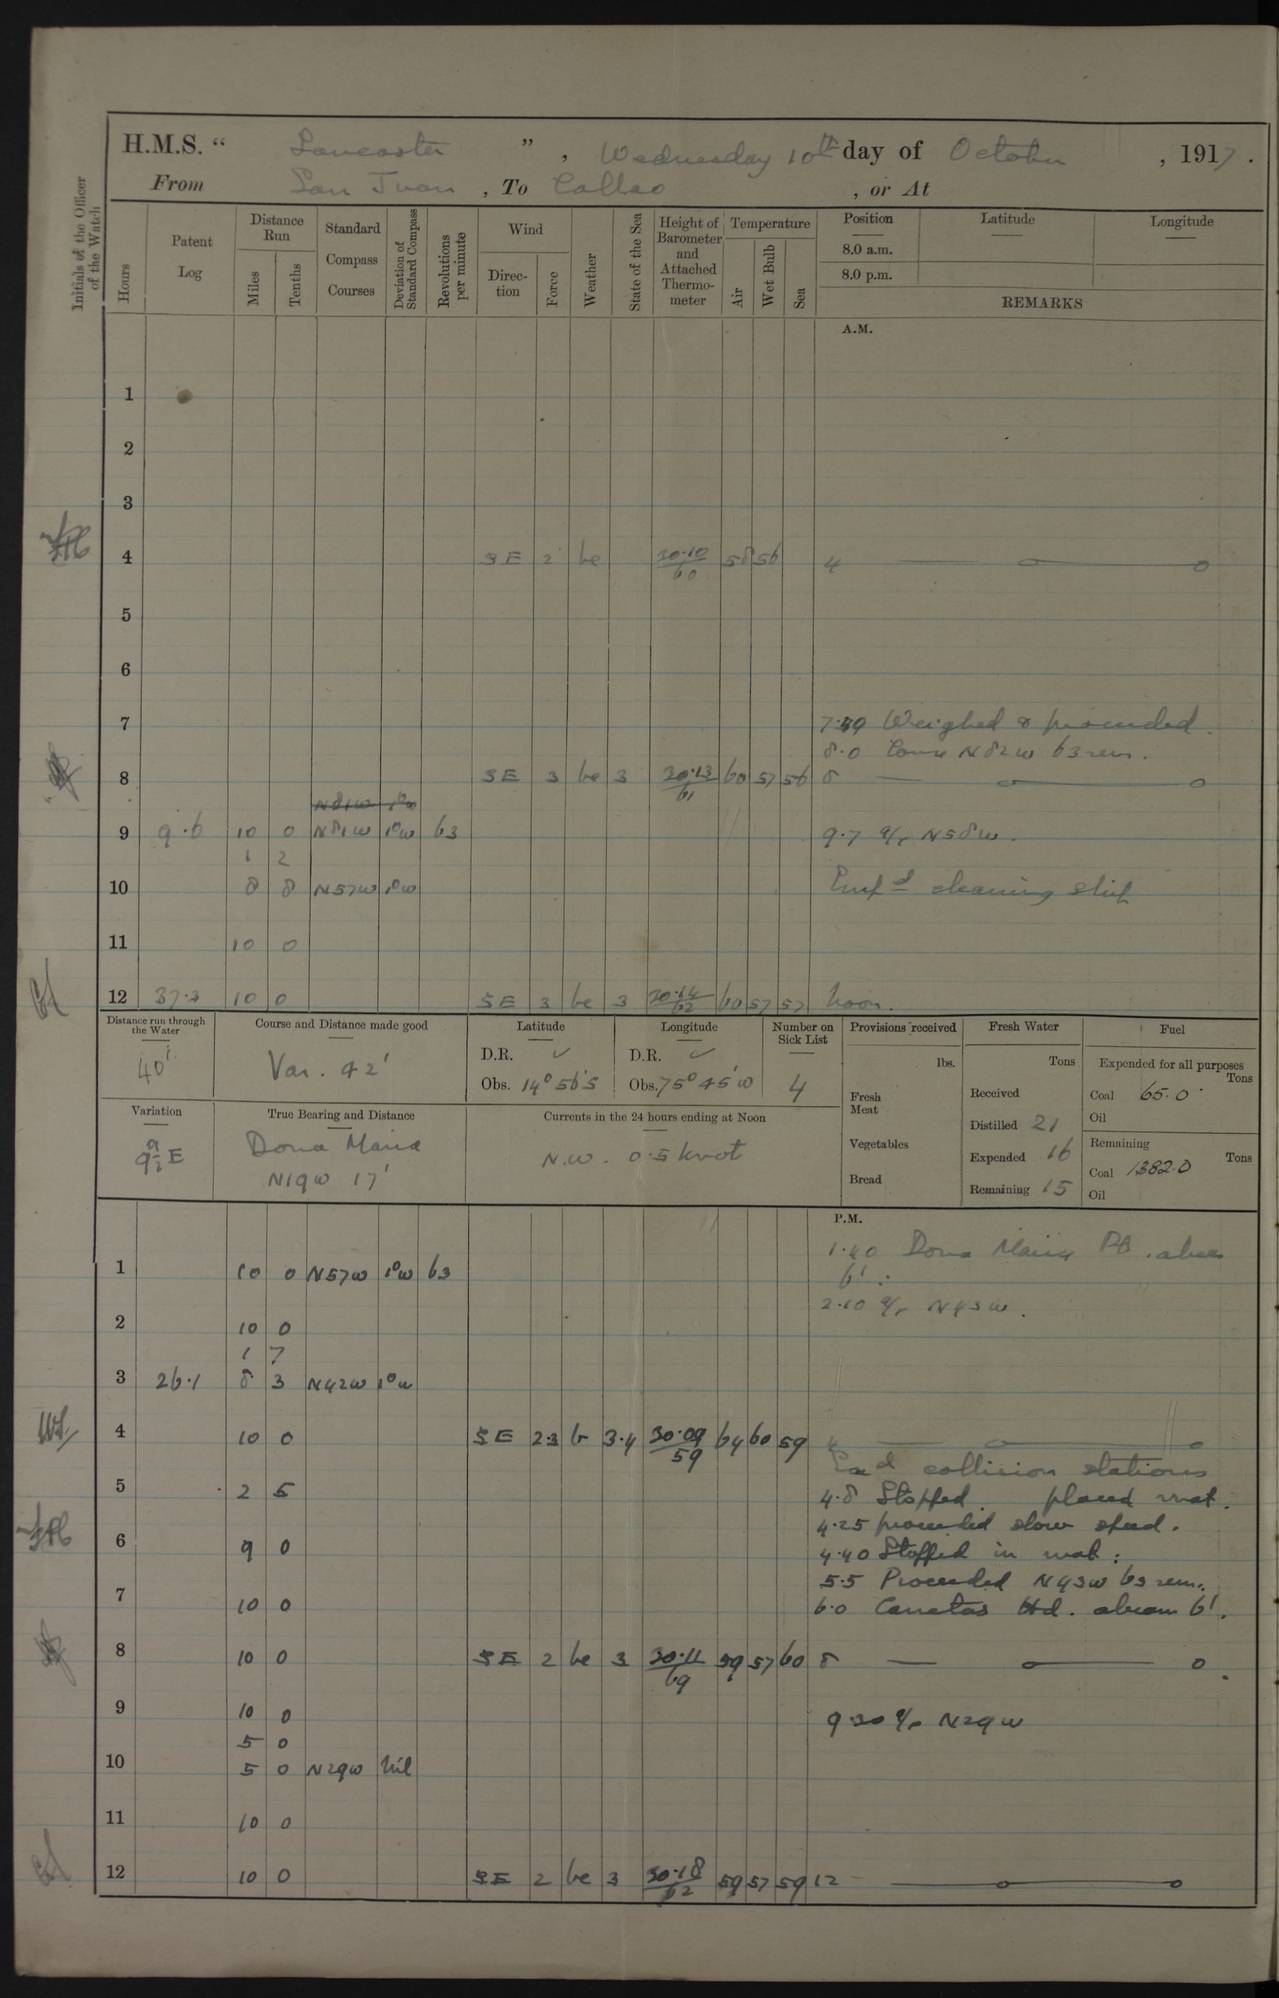 H.M.S. “ Lancaster ” , Wednesday 10th day of October , 1917 .
From San Juan , To Callao , or At
Initials of the Officer of the Watch
Hours
Patent Log
Distance Run
Miles
Tenths
Standard Compass Courses
Deviation of Standard Compass
Revolutions per minute
Wind
Direc-tion
Force
Weather
State of the Sea
Height of Barometer and Attached Thermo-meter
Temperature
Air
Wet Bulb
Sea
Position Latitude Longitude
8.0 a.m.
8.0 p.m.
REMARKS
A.M.
1
2
3
4 SE 2 bc 30.10/60 58 56 4
5
6
7 7.49 Weighed & proceeded.
8.0 Course N82W 63 revs.
8 SE 3 bc 3 30.13/61 60 57 56 8
N81W 1°W
9 9.6 10 0 N81W 1°W 63 9.7 a/c N58W.
1 2
10 8 8 N57W 1°W Empd cleaning ship
11 10 0
12 37.3 10 0 SE 3 bc 3 30.14/62 60 57 57 Noon.
Distance run through the Water
40'
Course and Distance made good
Var. 42'
Latitude
D.R. ✓
Obs. 14° 56'S
Longitude
D.R. ✓
Obs. 75° 45'W
Number on Sick List
4
Provisions received
lbs.
Fresh Meat
Vegetables
Bread
Fresh Water
Tons
Received
Distilled 21
Expended 16
Remaining 15
Fuel
Expended for all purposes
Tons
Coal 65.0
Oil
Remaining
Tons
Coal 1382.0
Oil
Variation
9½ E
True Bearing and Distance
Dona Maria
N19W 17'
Currents in the 24 hours ending at Noon
N.W. 0.5 knot
P.M.
1.40 Dona Maria Pk. abeam
6'.
1 10 0 N57W 1°W 63
2.10 a/c N43W.
2 10 0
1 7
3 26.1 8 3 N42W 1°W
4 10 0 SE 2.3 b 3.4 30.09/59 64 60 59 4
Exd collision stations
5 2 5 4.8 Stopped. placed mat.
4.25 proceeded slow speed.
6 9 0 4.40 Stopped in mat:
5.5 Proceeded N43W 63 revs.
7 10 0 6.0 Carretas Hd. abeam 6'.
8 10 0 SE 2 bc 3 30.11/69 59 57 60 8
9 10 0 9.30 a/c N29W
5 0
10 5 0 N29W Nil
11 10 0
12 10 0 SE 2 bc 3 30.18/62 59 57 59 12